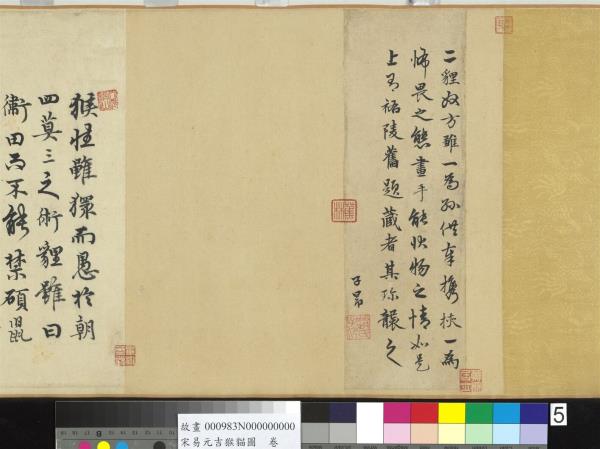 二貍奴方雛一為孫供奉攜挾一為
怖畏之態畫手能狀物之情如是
上有祐陵舊題藏者其珍襲之
子昂
猴性雖獧而愚於朝
四莫三之術貍雖曰
衛田而不能禁碩鼠
5
故畫 000983N000000000
宋易元吉猴貓圖 卷